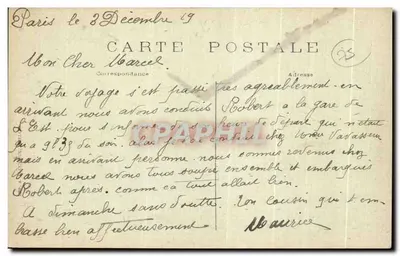 Paris le 2 Décembre 19
CARTE POSTALE
Mon Cher Marcel
Correspondance Adresse
Notre voyage s'est passé très agréablement en
arrivant nous avons conduit Robert à la gare de
l'Est pour s' du départ qui n'était
qu'a 9h35 du soir. chez
mais en arrivant personne. nous sommes revenus chez
Marcel nous avons tous soupé ensemble et embarqués
Robert après. comme ça tout allait bien.
A dimanche sans doute. Ton cousin qui t'em-
brasse bien affectueusement
Maurice